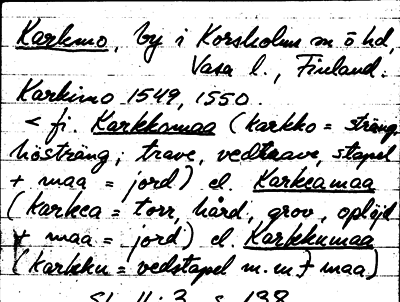 Karkmo, by i Korsholms m ö hd,
Vasa l., Finland.
Karkimo 1549, 1550.
< fi. Karkkomaa (karkko = sträng,
hösträng; trave, vedtrave, stapel
+ maa = jord) el. Karkeamaa
(karkea = torr, hård, grov, oplöjd
+ maa = jord) el. Karkkumaa
(karkku = vedstapel m.m. + maa)
s. 198